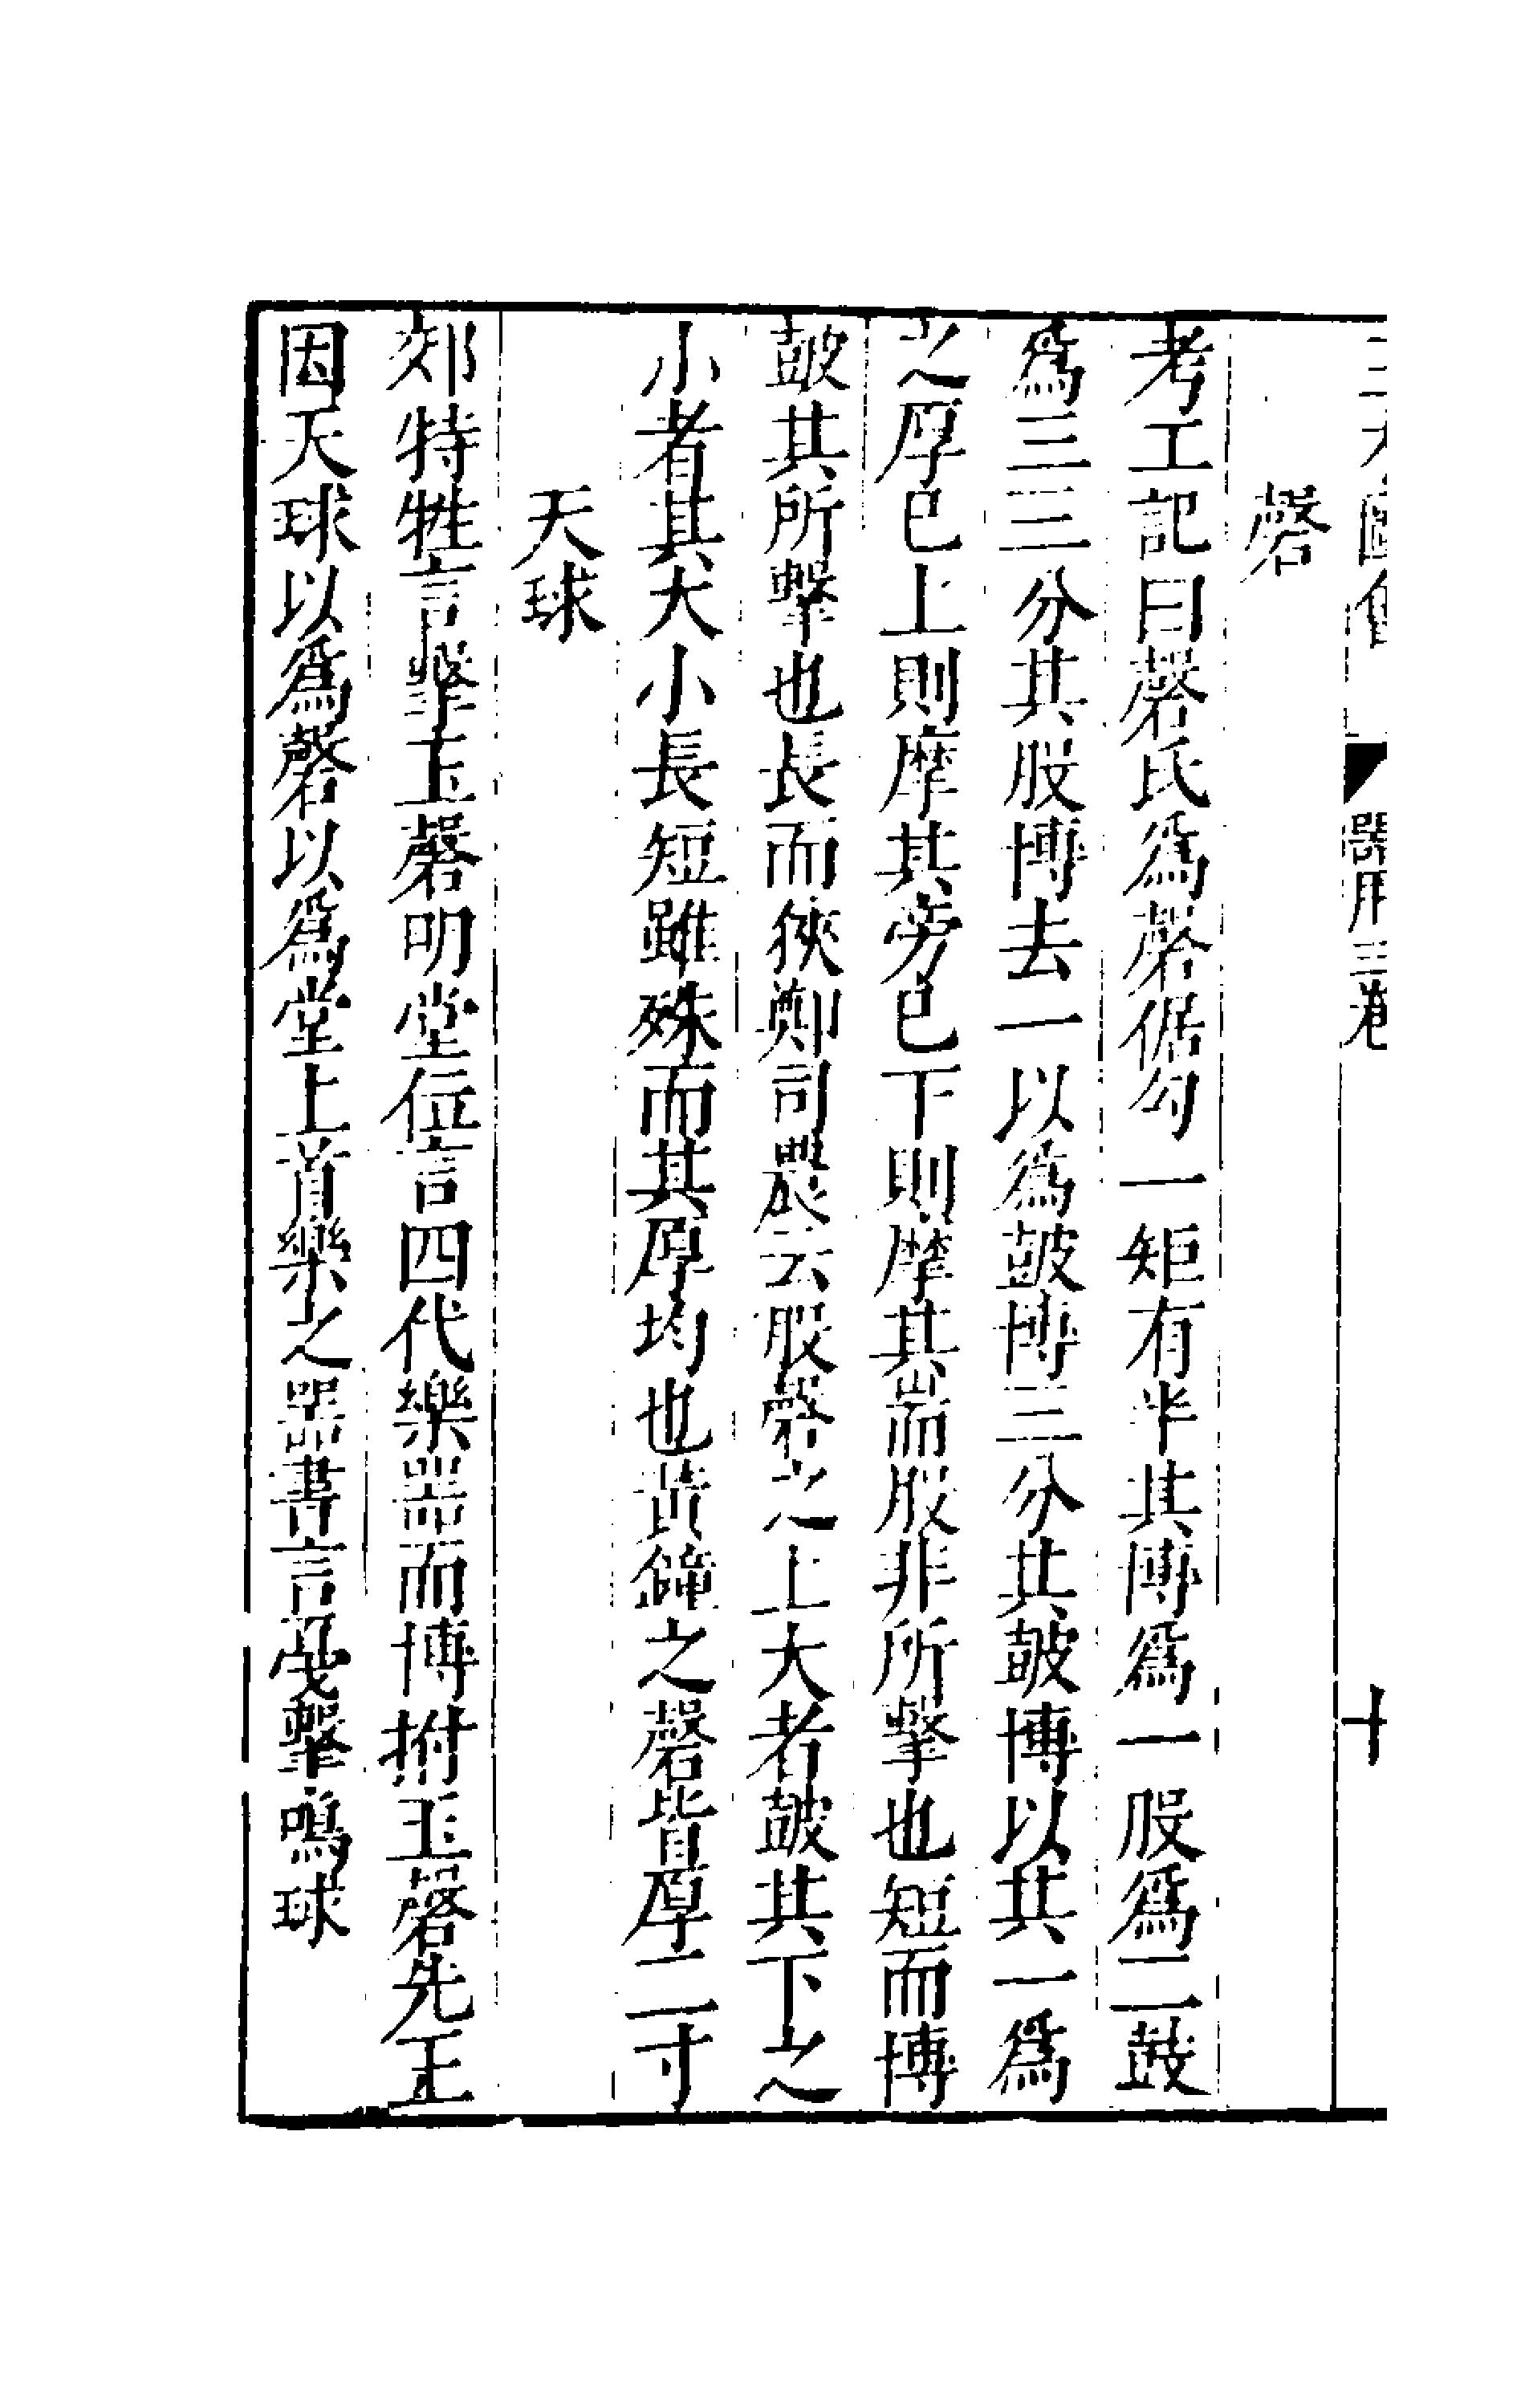 三才圖會 器用三卷 十
磬
考工記曰磬氏爲磬倨勾一矩有半其博爲一股爲二鼓
爲三三分其股博去一以爲皷博三分其皷博以其一爲
之厚已上則摩其旁已下則摩其耑股非所擊也短而博
皷其所擊也長而狹鄭司農云股磬之上大者皷其下之
小者其大小長短雖殊而其厚均也黃鐘之磬皆厚二寸
天球
郊特牲言擊玉磬明堂位言四代樂器而博拊玉磬先王
因天球以爲磬以爲堂上首樂之器書言戞擊鳴球